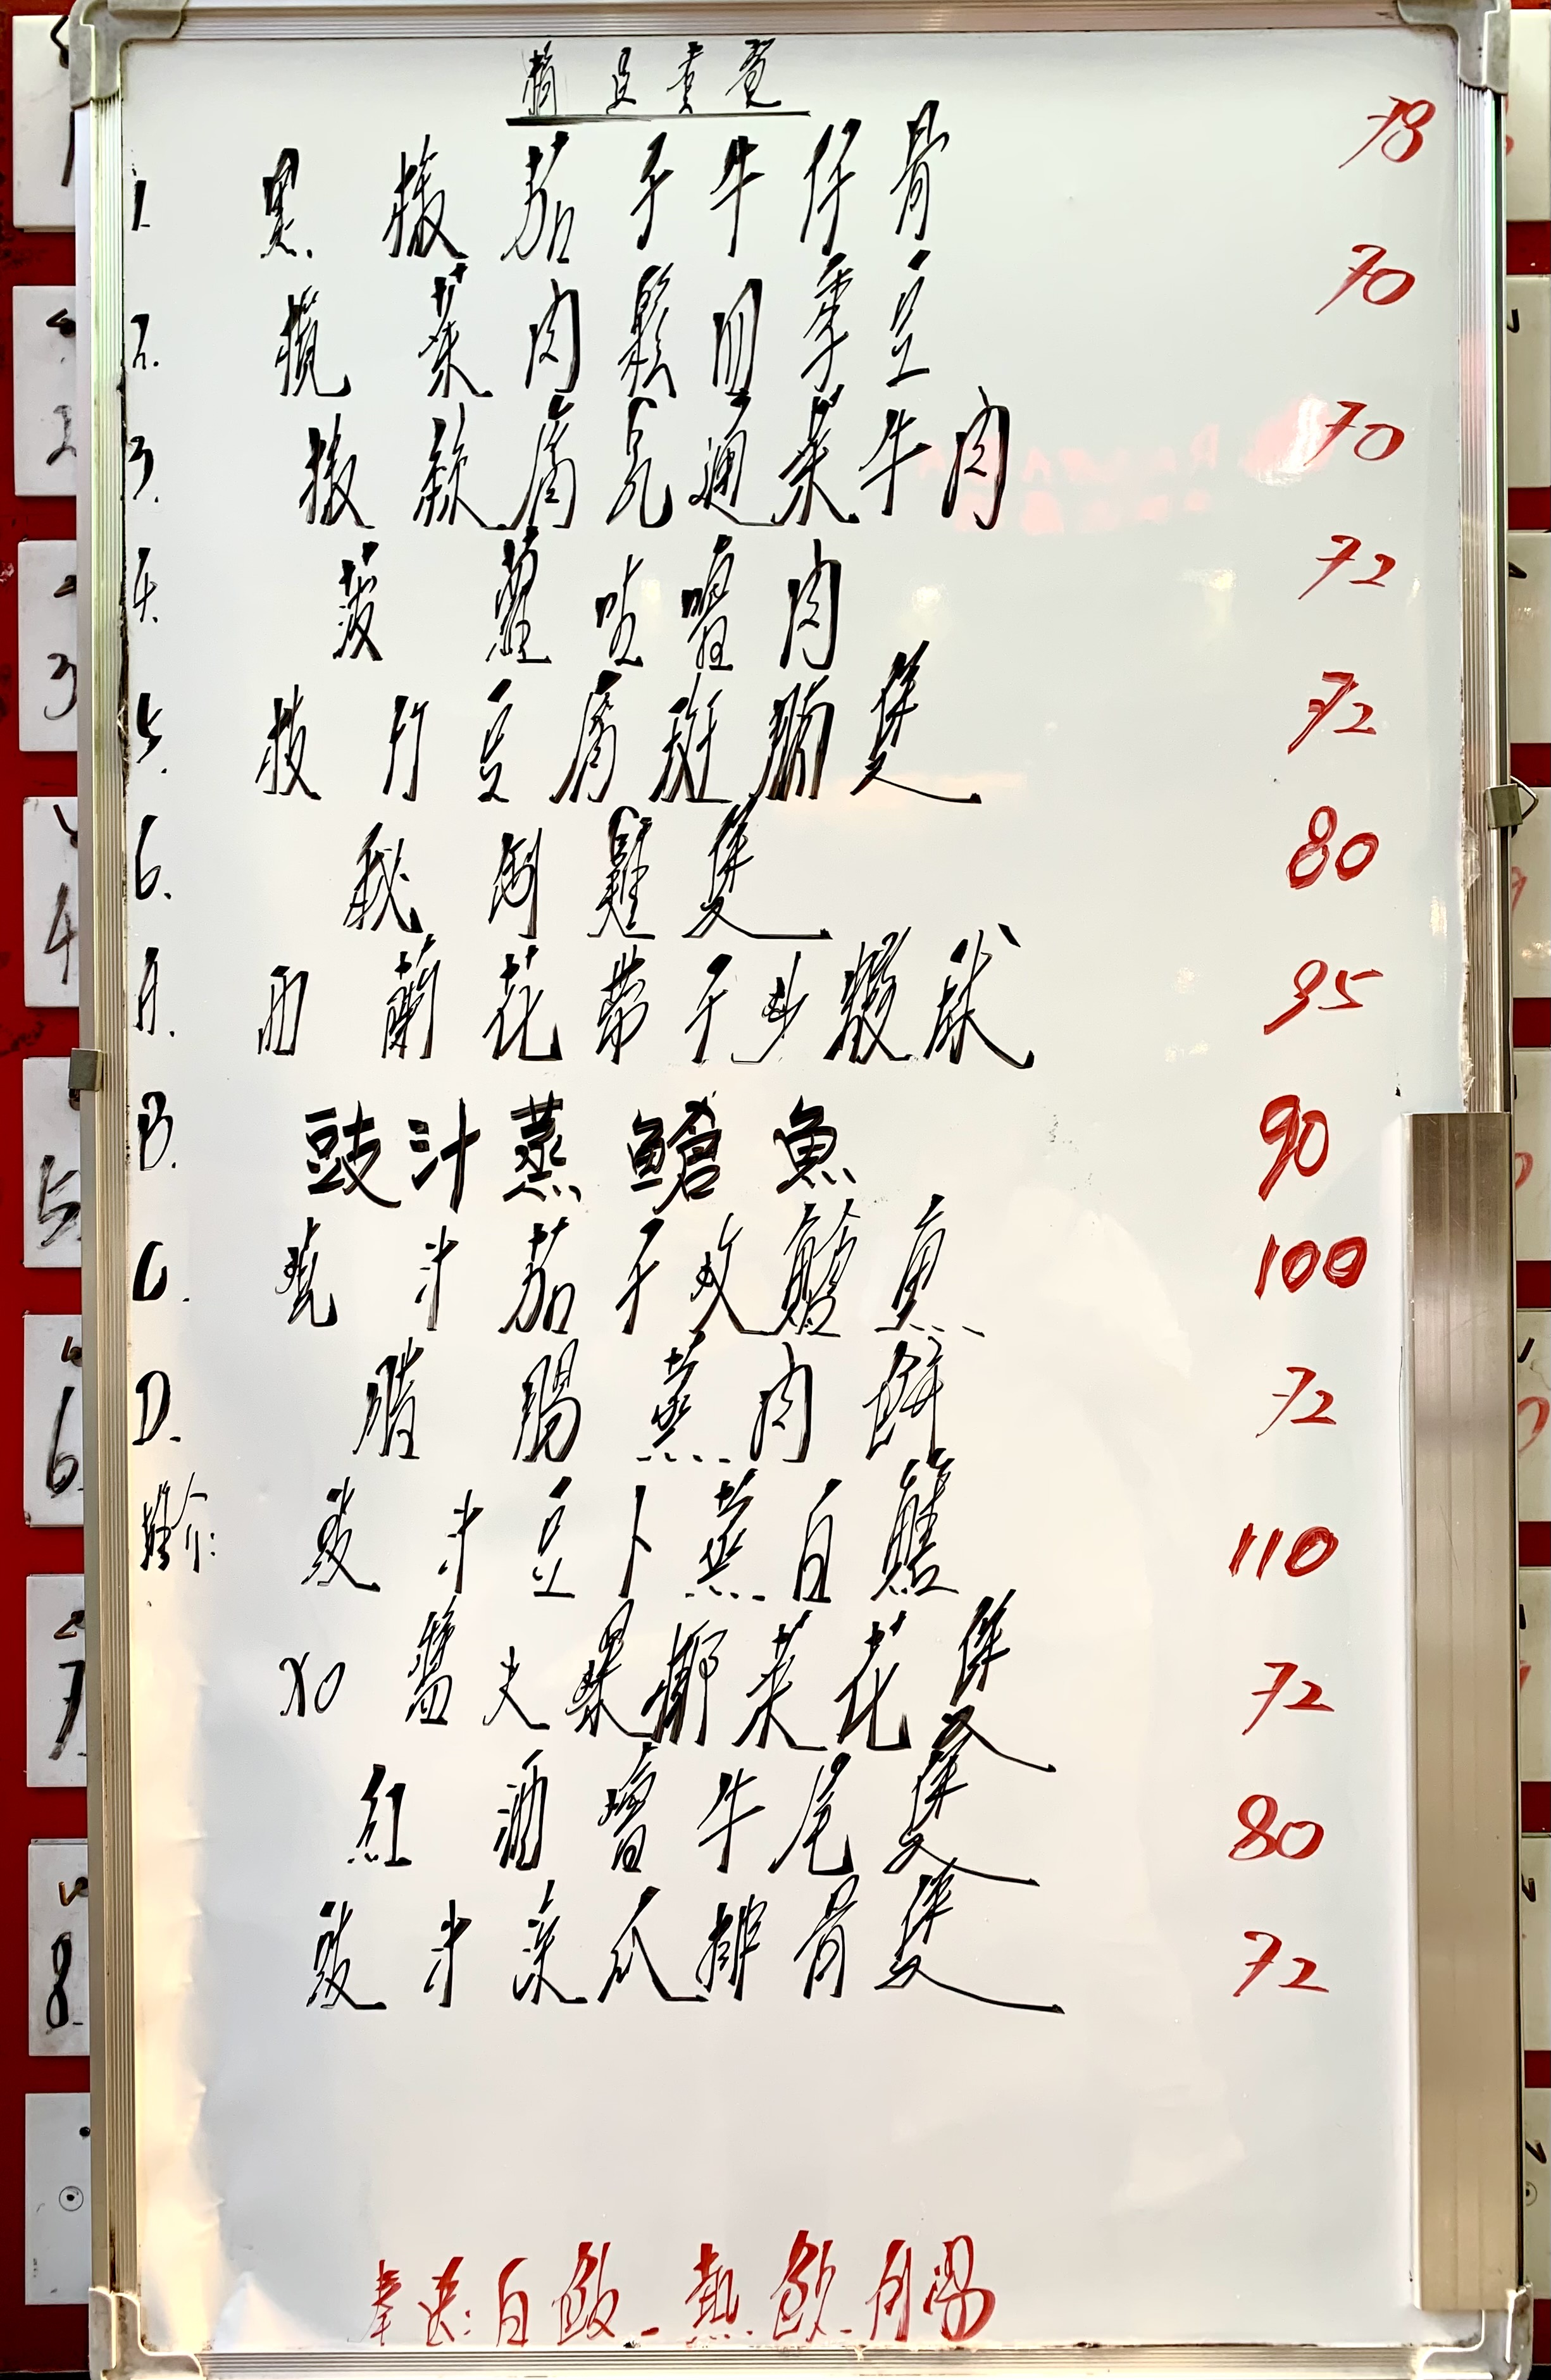 精品套餐
1. 黑椒茄子牛仔骨 78
2. 欖菜肉鬆四季豆 70
3. 椒絲腐乳通菜牛肉 70
4. 菠蘿咕嚕肉 72
5. 枝竹豆腐斑腩煲 72
6. 秘制雞煲 80
A. 西蘭花帶子炒蝦球 95
B. 豉汁蒸鯧魚 90
C. 豉汁茄子炆鱔魚 100
D. 臘腸蒸肉餅 72
推介: 豉汁豆卜蒸白鱔 110
XO醬火爆椰菜花煲 72
紅酒燴牛尾煲 80
豉汁涼瓜排骨煲 72
奉送: 白飯. 熱飲. 例湯
1
2
3
4
5
6
7
8